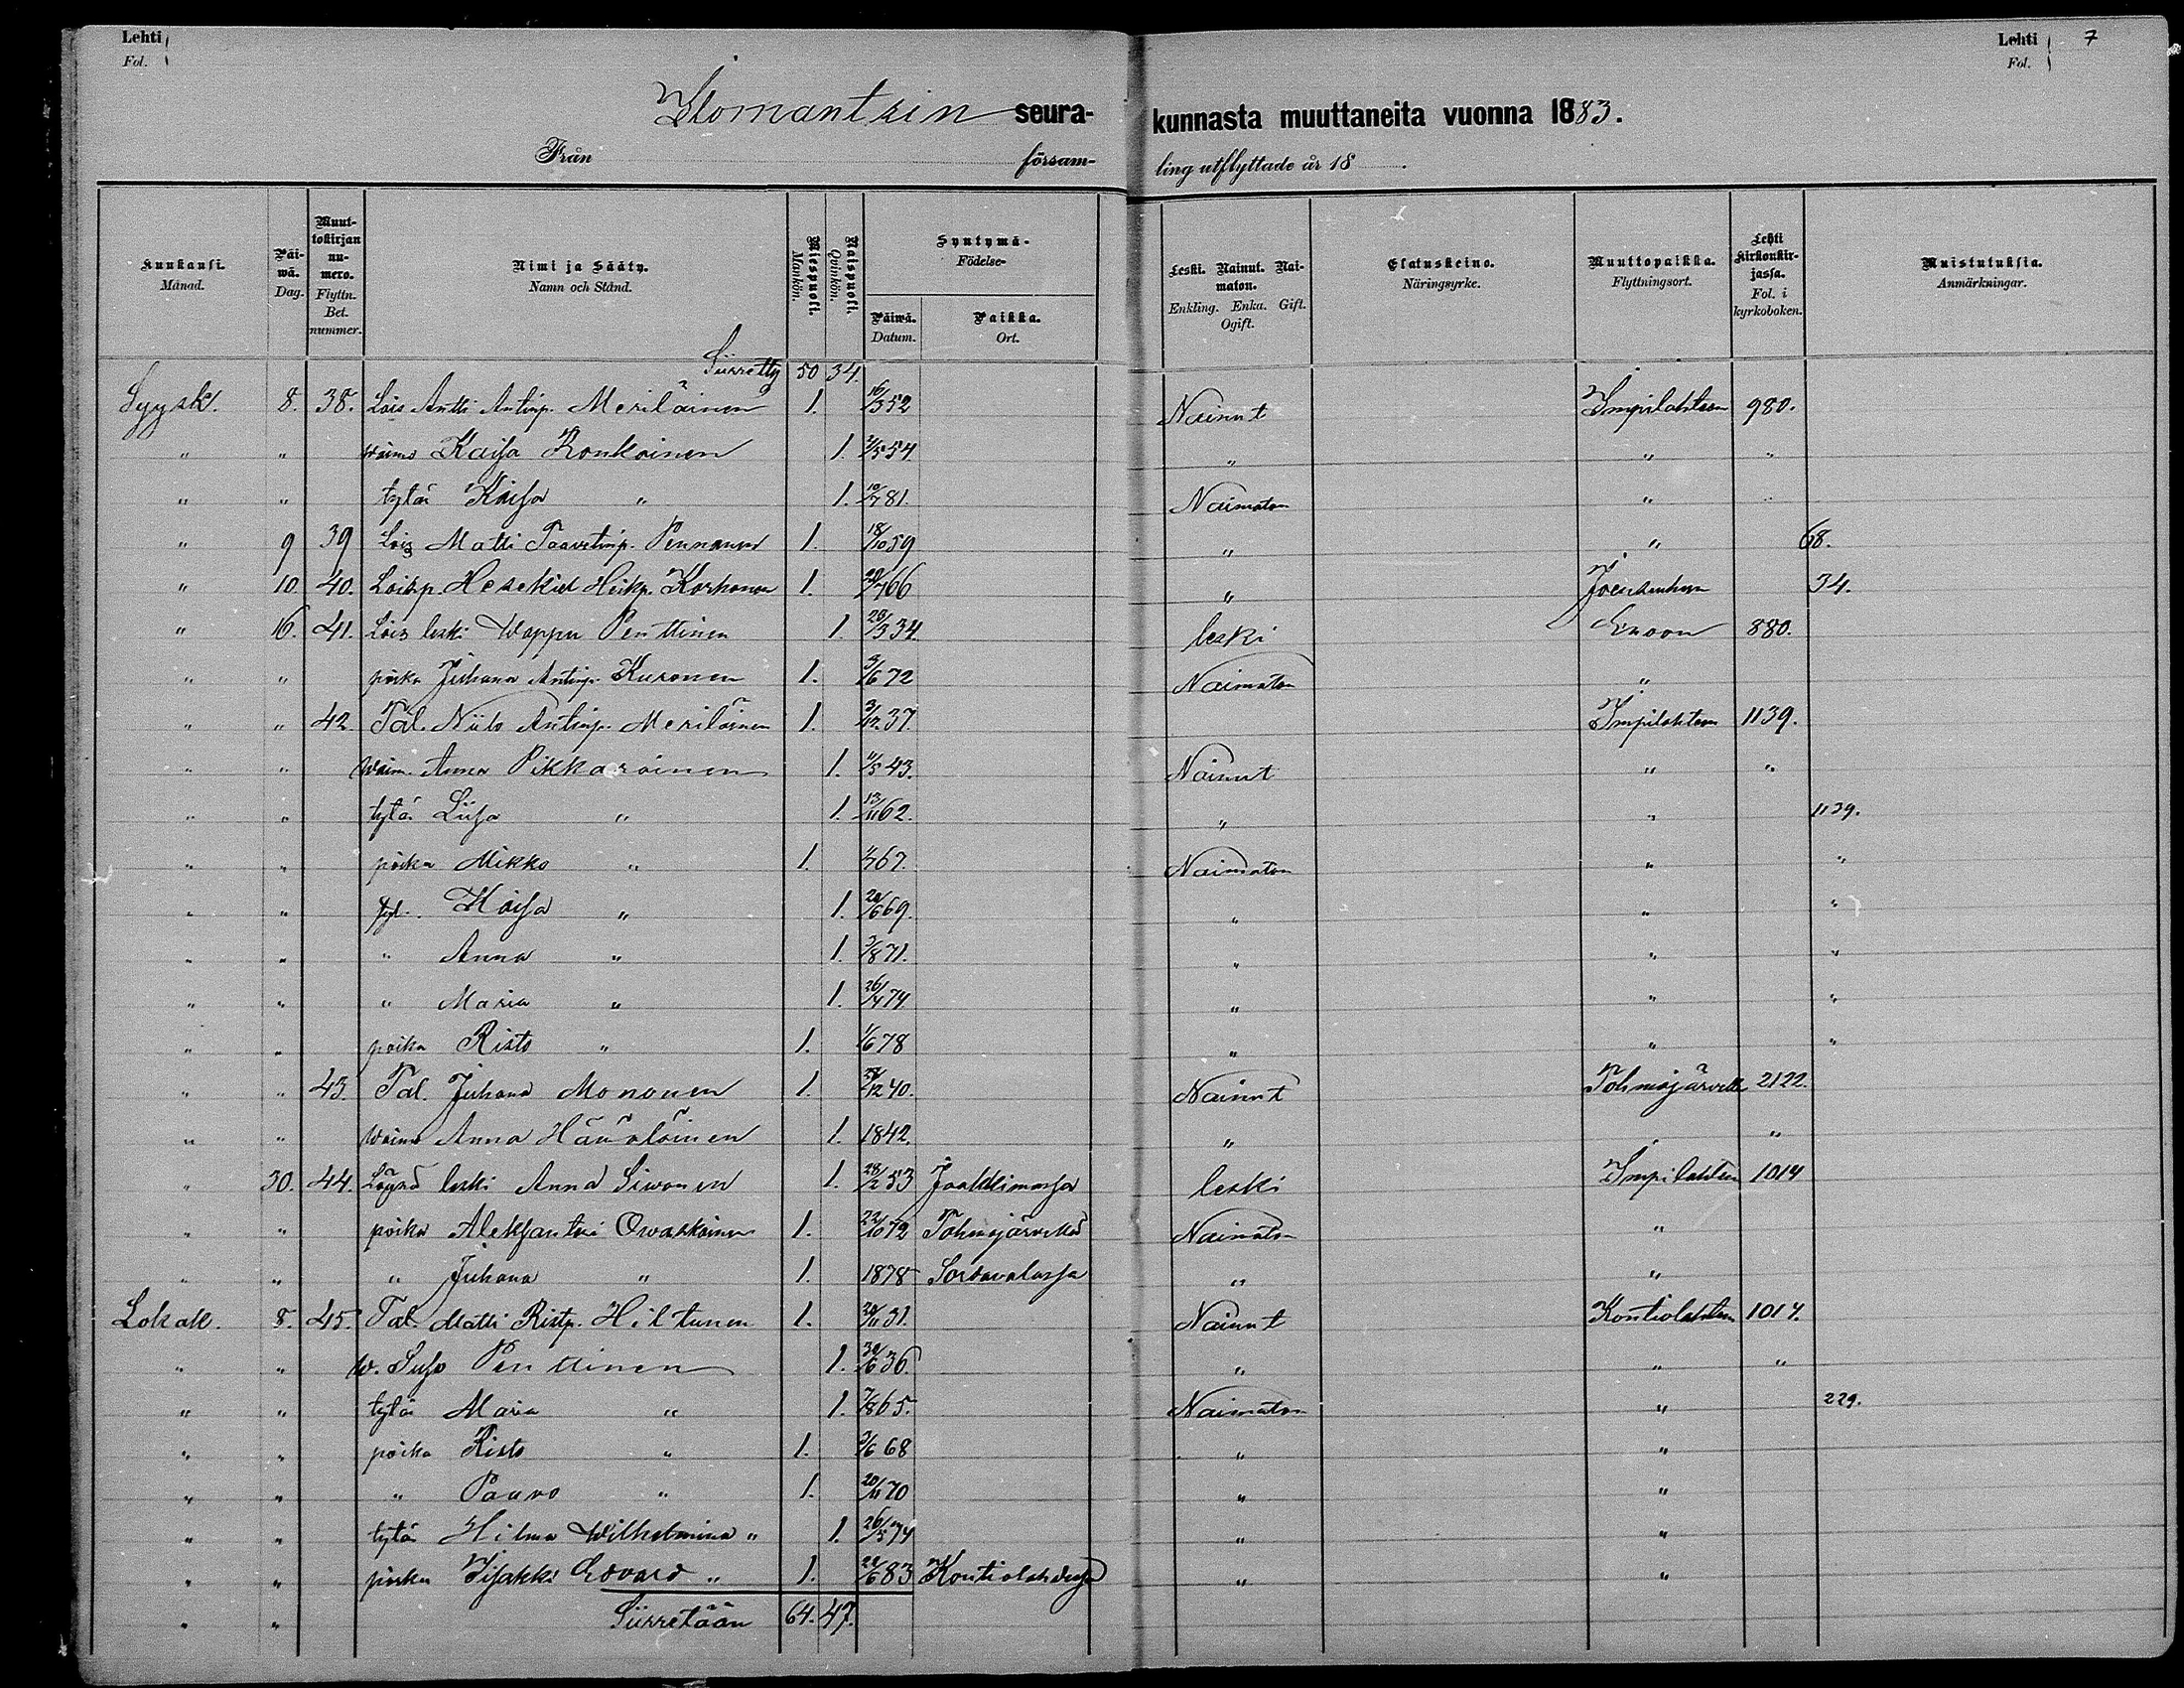 Lehti Fol.
Lehti Fol. 7
Ilomantsin seura- kunnasta muuttaneita vuonna 1883.
Från försam- ling utflyttade år 18 .
Kuukausi. Månad. Päi-wä. Dag. Muut-tokirjan nu-mero. Flyttn. Bet. nummer. Nimi ja Sääty. Namn och Stånd. Miespuoli. Mankön. Naispuoli. Qvinkön. Syntymä- Födelse- Päiwä. Datum. Paikka. Ort. Leski. Nainut. Nai-maton. Enkling. Enka. Gift. Ogift. Elatuskeino. Näringsyrke. Muuttopaikka. Flyttningsort. Lehti Kirkonkir-jassa. Fol. i kyrkoboken. Muistutuksia. Anmärkningar.
Siirretty 50 34.
Syysk. 8. 38. Lois Antti Antinp. Meriläinen 1. 16/3 52 Nainut Impilahteen 980.
" " waimo Kaisa Ronkainen 1. 54 " " "
" " tytär Kaisa " 1. 10/7 81. Naimaton " "
" 9 39 Lois Matti Taavetinp. Pennanen 1. 18/10 59 " " 68.
" 10. 40. Loisp. Hesekiel Heikp. Korhonen 1. 66 " Joensuuhun 34.
" 16. 41. Lois leski Wappu Penttinen 1. 20/3 34. leski Enoon 880.
" " poika Juhana Antinp. Kuronen 1. 72 Naimaton "
" " 42. Tal. Niilo Antinp. Meriläinen 1. 3/12 37. Impilahteen 1139.
" " Waim. Anna Pikkarainen 1. 43. Nainut " "
" " tytär Liisa " 1. 13/11 62. " " 1139.
" " poika Mikko " 1. 1/7 67. Naimaton " "
" " tyt. Kaisa " 1. 69. " " "
" " " Anna " 1. 3/8 71. " " "
" " " Maria " 1. 26/4 74 " " "
" " poika Risto " 1. 1/6 78 " " "
" " 43. Tal. Juhana Mononen 1. 40. Nainut Tohmajärvelle 2122.
" " waimo Anna Hämäläinen 1. 1842. " "
" 30. 44. leski Anna Siwonen 1. 28/2 53 Jaakkimassa leski Impilahteen 1014
" " poika Aleksanteri Owaskainen 1. 22/10 72 Tohmajärvellä Naimaton "
" " " Juhana " 1. 1878 Sordavalassa " "
Lokak. 8. 45. Tal. Matti Ristp. Hiltunen 1. 31. Nainut Kontiolahteen 1014.
" " W. Penttinen 1. 30/6 36. " " "
" " tytär Maria " 1. 7/8 65. Naimaton " 229.
" " poika Risto " 1. 3/6 68 " "
" " " Paavo " 1. 20/11 70 " "
" " tytär Hilma Wilhelmina " 1. 26/5 74 " "
" " poika Iisakki Edvard " 1. 83 Kontiolahdessa " "
" " Siirretään 64. 47.